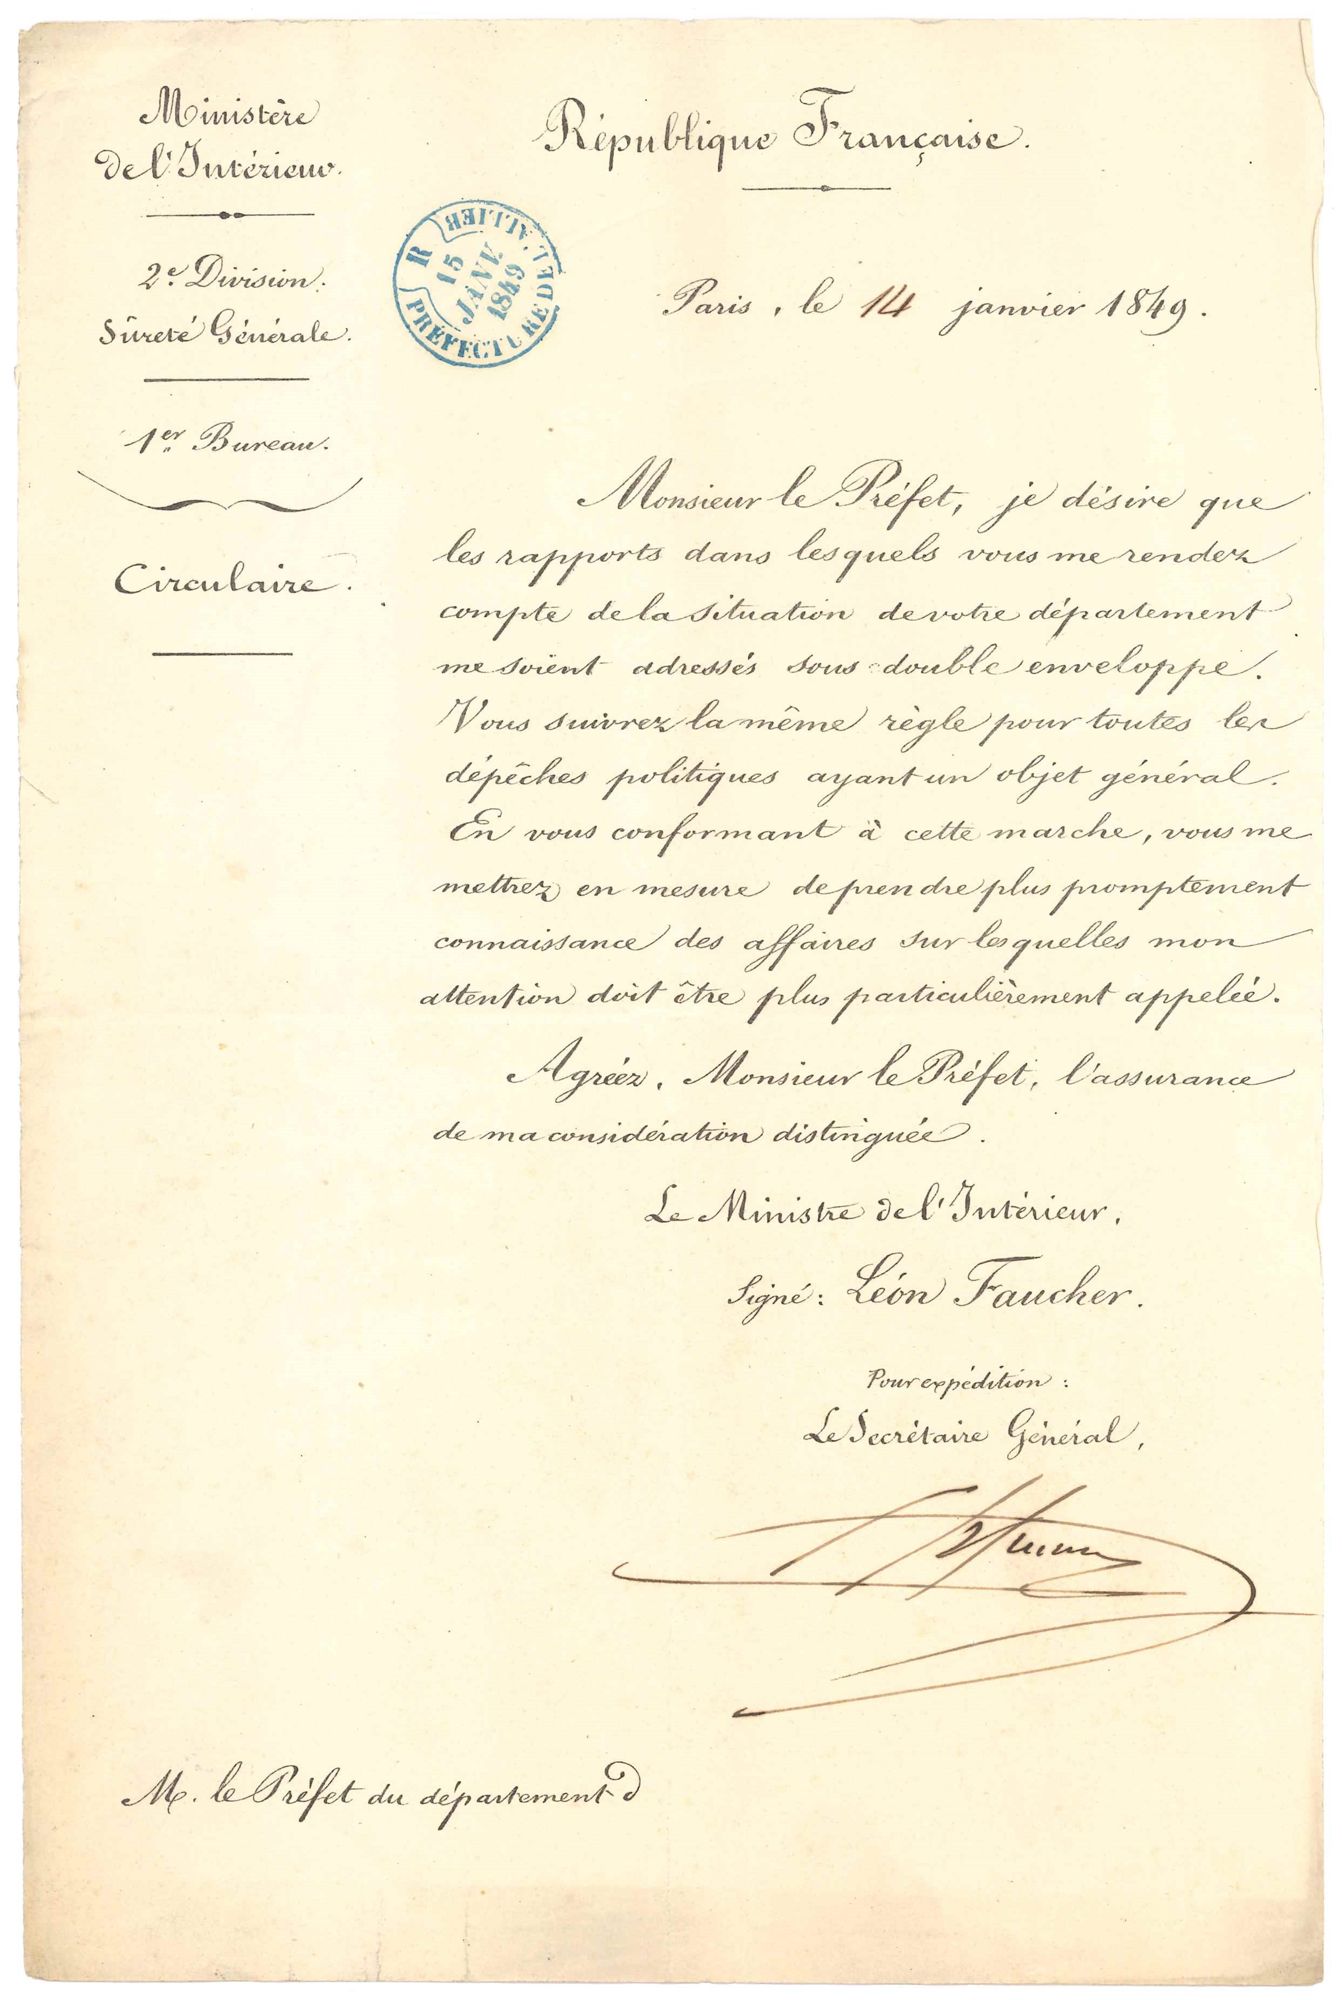 Ministère
de l'Intérieur.
2e. Division.
Sûreté Générale.
1er. Bureau.
Circulaire.
République Française.
PRÉFECTURE DE L'ALLIER
R
15
JANV.
1849
Paris, le 14 janvier 1849.
Monsieur le Préfet, je désire que
les rapports dans lesquels vous me rendez
compte de la situation de votre département
me soient adressés sous double enveloppe.
Vous suivrez la même règle pour toutes les
dépêches politiques ayant un objet général.
En vous conformant à cette marche, vous me
mettrez en mesure de prendre plus promptement
connaissance des affaires sur lesquelles mon
attention doit être plus particulièrement appelée.
Agréez, Monsieur le Préfet, l'assurance
de ma considération distinguée.
Le Ministre de l'Intérieur,
Signé: Léon Faucher.
Pour expédition:
Le Secrétaire Général,
M. le Préfet du département d